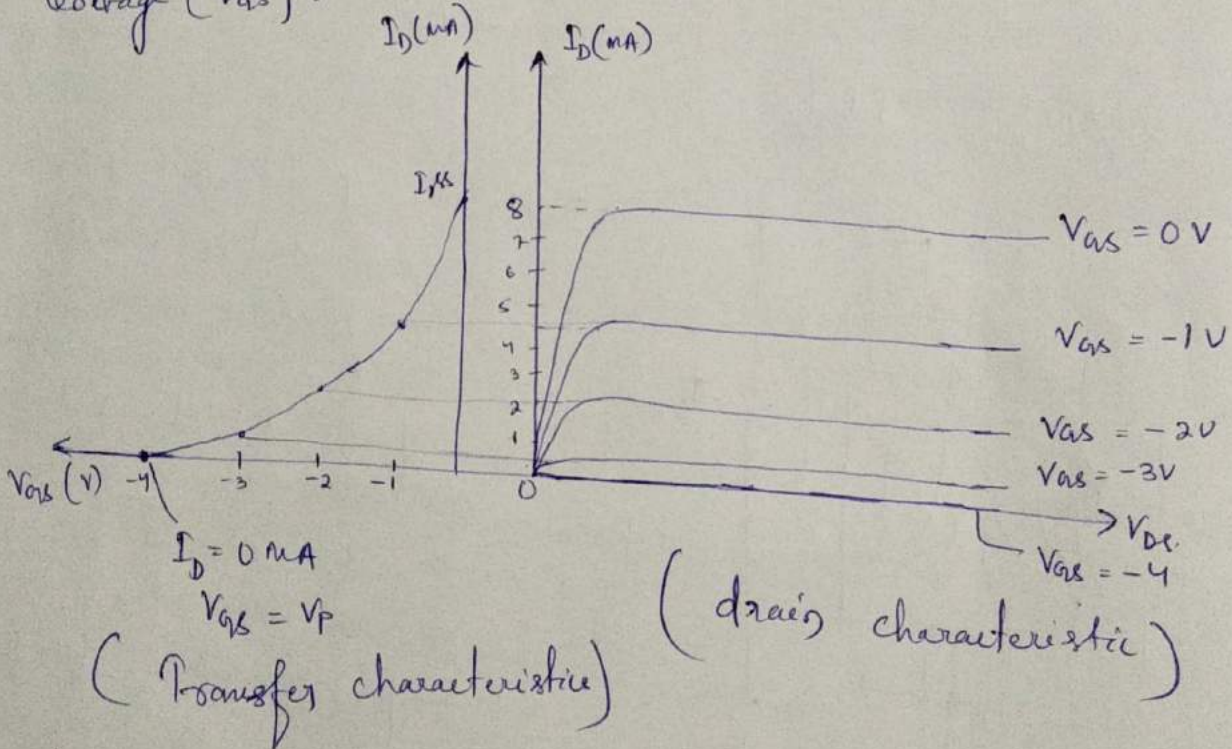 Voltage (VGS) .
ID(mA)
ID(mA)
IDSS
8
7
6
5
4
3
2
1
0
VGS = 0 V
VGS = -1 V
VGS = -2V
VGS = -3V
VDS.
VGS = -4
VGS (V) -4 -3 -2 -1
ID = 0 mA
VGS = VP
( Transfer characteristic)
( drain characteristic )